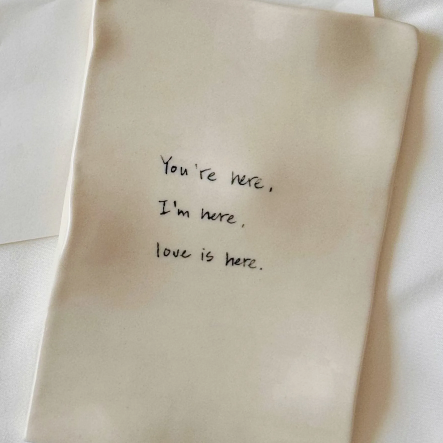 You're here,
I'm here,
love is here.